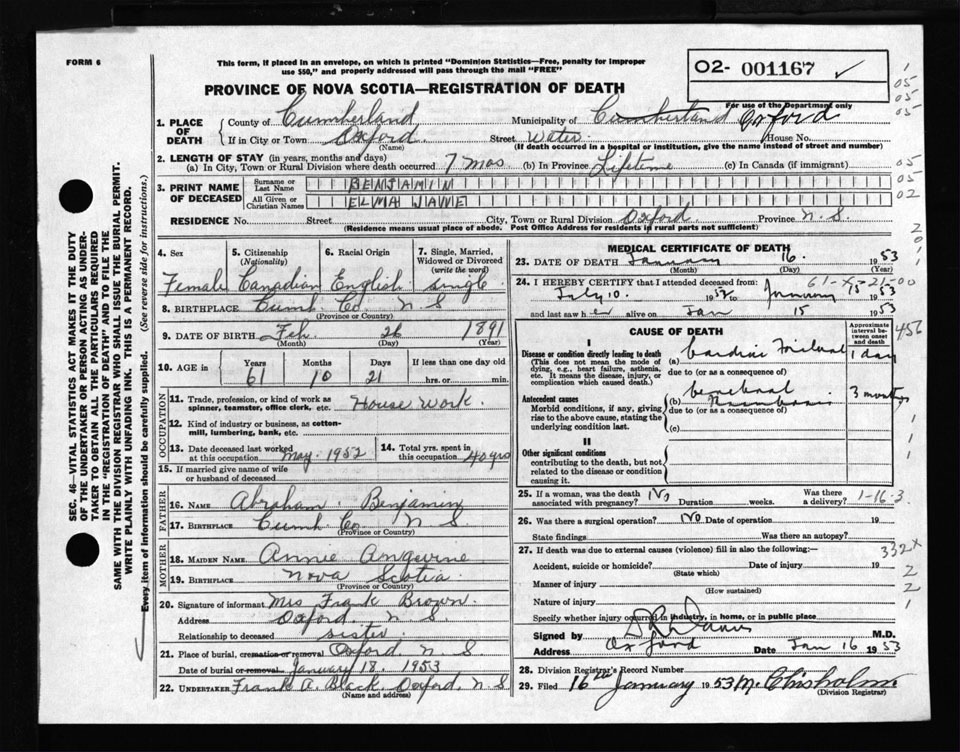 FORM 6
This form, if placed in an envelope, on which is printed "Dominion Statistics—Free, penalty for improper
use $50," and properly addressed will pass through the mail "FREE"
O2- 001167 ✓
PROVINCE OF NOVA SCOTIA—REGISTRATION OF DEATH
For use of the Department only
1. PLACE OF DEATH
County of Cumberland Municipality of Cumberland Oxford
If in City or Town Oxford (Name) Street Water House No.
(If death occurred in a hospital or institution, give the name instead of street and number)
2. LENGTH OF STAY (in years, months and days)
(a) In City, Town or Rural Division where death occurred 7 mos (b) In Province Lifetime (c) In Canada (if immigrant)
3. PRINT NAME OF DECEASED
Surname or Last Name BENJAMIN
All Given or Christian Names ELMA JANE
RESIDENCE No. Street City, Town or Rural Division Oxford Province N. S.
(Residence means usual place of abode. Post Office Address for residents in rural parts not sufficient)
4. Sex Female
5. Citizenship (Nationality) Canadian
6. Racial Origin English
7. Single, Married, Widowed or Divorced (write the word) Single
8. BIRTHPLACE Cumb. Co. N S
(Province or Country)
9. DATE OF BIRTH Feb. 26 1891
(Month) (Day) (Year)
10. AGE in Years 61 Months 10 Days 21 If less than one day old
hrs. or min.
OCCUPATION
11. Trade, profession, or kind of work as spinner, teamster, office clerk, etc. House Work.
12. Kind of industry or business, as cotton-mill, lumbering, bank, etc.
13. Date deceased last worked at this occupation May. 1952
14. Total yrs. spent in this occupation 40 yrs
15. If married give name of wife or husband of deceased
FATHER
16. NAME Abraham Benjamin
17. BIRTHPLACE Cumb. Co. N S
(Province or Country)
MOTHER
18. MAIDEN NAME Annie Angevine
19. BIRTHPLACE Nova Scotia
(Province or Country)
20. Signature of informant Mrs Frank Brown.
Address Oxford. N. S.
Relationship to deceased sister
21. Place of burial, cremation or removal Oxford N. S
Date of burial or removal January 18. 1953
22. UNDERTAKER Frank A. Black Oxford, N. S
(Name and address)
MEDICAL CERTIFICATE OF DEATH
23. DATE OF DEATH January 16. 1953
(Month) (Day) (Year)
24. I HEREBY CERTIFY that I attended deceased from:
July 10. 1952 to January 15 1953
and last saw her alive on Jan 15 1953
CAUSE OF DEATH
Approximate interval between onset and death
I
Disease or condition directly leading to death
(This does not mean the mode of dying, e.g., heart failure, asthenia, etc. It means the disease, injury, or complication which caused death.)
(a) Cardiac 1 day
due to (or as a consequence of)
Antecedent causes
Morbid conditions, if any, giving rise to the above cause, stating the underlying condition last.
(b) cerebral thrombosis 3 months
due to (or as a consequence of)
(c)
II
Other significant conditions
contributing to the death, but not related to the disease or condition causing it.
25. If a woman, was the death associated with pregnancy? No Duration weeks. Was there a delivery? 1-16-3
26. Was there a surgical operation? No Date of operation 19
State findings Was there an autopsy?
27. If death was due to external causes (violence) fill in also the following:—
Accident, suicide or homicide? Date of injury 19
(State which)
Manner of injury
(How sustained)
Nature of injury
Specify whether injury occurred in industry, in home, or in public place
Signed by M.D.
Address Oxford Date Jan 16 1953
28. Division Registrar's Record Number
29. Filed 16 January 1953 M. Chisholm
(Division Registrar)
05
05
05
05
05
02
456
332X
SEC. 46—VITAL STATISTICS ACT MAKES IT THE DUTY
OF THE UNDERTAKER OR PERSON ACTING AS UNDERTAKER TO OBTAIN ALL THE PARTICULARS REQUIRED
IN THE "REGISTRATION OF DEATH" AND TO FILE THE
SAME WITH THE DIVISION REGISTRAR WHO SHALL ISSUE THE BURIAL PERMIT.
WRITE PLAINLY WITH UNFADING INK. THIS IS A PERMANENT RECORD.
Every item of information should be carefully supplied. (See reverse side for instructions.)